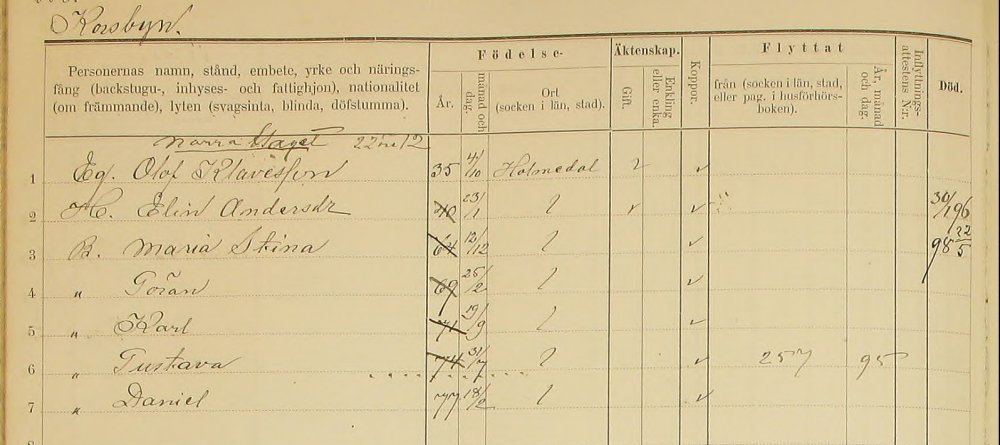 Korsbyn.
Personernas namn, stånd, embete, yrke och närings-
fång (backstugu-, inhyses- och fattighjon), nationalitet
(om främmande), lyten (svagsinta, blinda, döfstumma).
Födelse-
År.
månad och dag.
Ort
(socken i län, stad).
Äktenskap.
Gift.
Enkling eller enka.
Koppor.
Flyttat
från (socken i län, stad,
eller pag. i husförhörs-
boken).
År, månad och dag.
Inflyttnings-attestens Nr.
Död.
Norra Staget
1 Eg. Olof Klavesson 35 4/10 Holmedal
2 H. Elin Andersdr 40 23/1 30/1 96
3 B. Maria Stina 64 12/12 98 22/5
4 " Göran 69 25/2
5 " Karl 71 19/9
6 " Gustava 74 31/7 257 95
7 " Daniel 77 18/2
8